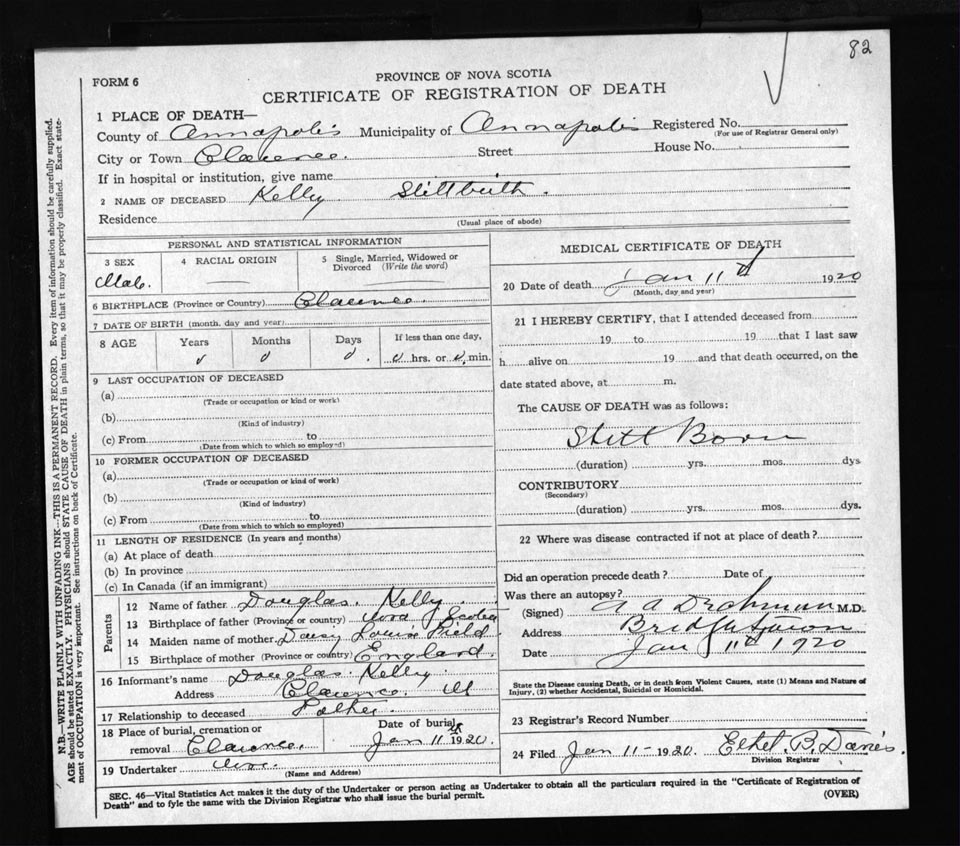 82
FORM 6
PROVINCE OF NOVA SCOTIA
CERTIFICATE OF REGISTRATION OF DEATH
1 PLACE OF DEATH—
County of Annapolis Municipality of Annapolis Registered No.
(For use of Registrar General only)
City or Town Clarence. Street House No.
If in hospital or institution, give name
2 NAME OF DECEASED Kelly Stillbirth.
Residence
(Usual place of abode)
PERSONAL AND STATISTICAL INFORMATION
3 SEX 4 RACIAL ORIGIN 5 Single, Married, Widowed or Divorced (Write the word)
Male. — —
6 BIRTHPLACE (Province or Country) Clarence.
7 DATE OF BIRTH (month, day and year)
8 AGE Years Months Days If less than one day,
0 0 0. 0 hrs. or 0 min.
9 LAST OCCUPATION OF DECEASED
(a)
(Trade or occupation or kind or work)
(b)
(Kind of industry)
(c) From to
(Date from which to which so employed)
10 FORMER OCCUPATION OF DECEASED
(a)
(Trade or occupation or kind of work)
(b)
(Kind of industry)
(c) From to
(Date from which to which so employed)
11 LENGTH OF RESIDENCE (In years and months)
(a) At place of death
(b) In province
(c) In Canada (if an immigrant)
Parents
12 Name of father Douglas. Kelly.
13 Birthplace of father (Province or country) Nova Scotia
14 Maiden name of mother Daisy Louise Field
15 Birthplace of mother (Province or country) England.
16 Informant's name Douglas. Kelly.
Address Clarence.
17 Relationship to deceased Father.
18 Place of burial, cremation or Date of burial
removal Clarence. Jan 11th 1920.
19 Undertaker
(Name and Address)
MEDICAL CERTIFICATE OF DEATH
20 Date of death Jan 11th 1920
(Month, day and year)
21 I HEREBY CERTIFY, that I attended deceased from
19 to 19 that I last saw
h alive on 19 and that death occurred, on the
date stated above, at m.
The CAUSE OF DEATH was as follows:
Still Born
(duration) yrs. mos. dys
CONTRIBUTORY
(Secondary)
(duration) yrs. mos. dys.
22 Where was disease contracted if not at place of death?
Did an operation precede death? Date of
Was there an autopsy?
(Signed) A A M.D.
Address Bridgetown
Date Jan 11th 1920
State the Disease causing Death, or in death from Violent Causes, state (1) Means and Nature of
Injury, (2) whether Accidental, Suicidal or Homicidal.
23 Registrar's Record Number
24 Filed Jan 11- 1920. Ethel. B. Davies.
Division Registrar
SEC. 46—Vital Statistics Act makes it the duty of the Undertaker or person acting as Undertaker to obtain all the particulars required in the "Certificate of Registration of
Death" and to fyle the same with the Division Registrar who shall issue the burial permit.
(OVER)
N.B.—WRITE PLAINLY WITH UNFADING INK—THIS IS A PERMANENT RECORD. Every item of information should be carefully supplied.
AGE should be stated EXACTLY. PHYSICIANS should STATE CAUSE OF DEATH in plain terms, so that it may be properly classified. Exact state-
ment of OCCUPATION is very important. See instructions on back of Certificate.